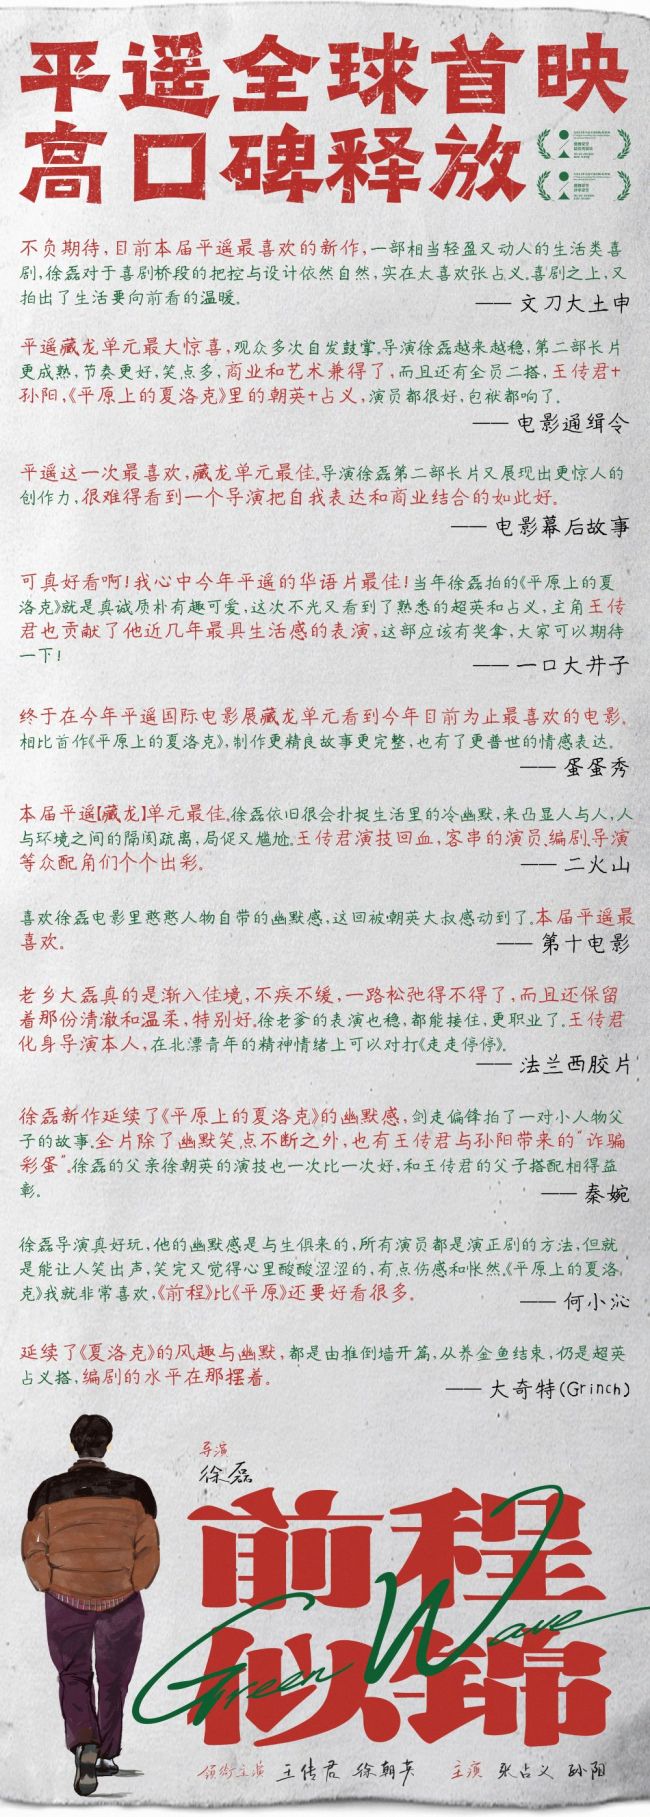 平遥全球首映
高口碑释放
不负期待,目前本届平遥最喜欢的新作,一部相当轻盈又动人的生活类喜
剧,徐磊对于喜剧桥段的把控与设计依然自然,实在太喜欢张占义。喜剧之上,又
拍出了生活要向前看的温暖。
—— 文刀大土申
平遥藏龙单元最大惊喜,观众多次自发鼓掌。导演徐磊越来越稳,第二部长片
更成熟,节奏更好,笑点多,商业和艺术兼得了,而且还有全员二搭,王传君+
孙阳,《平原上的夏洛克》里的朝英+占义,演员都很好,包袱都响了。
—— 电影通缉令
平遥这一次最喜欢,藏龙单元最佳。导演徐磊第二部长片又展现出更惊人的
创作力,很难得看到一个导演把自我表达和商业结合的如此好。
—— 电影幕后故事
可真好看啊!我心中今年平遥的华语片最佳!当年徐磊拍的《平原上的夏
洛克》就是真诚质朴有趣可爱,这次不光又看到了熟悉的超英和占义,主角王传
君也贡献了他近几年最具生活感的表演,这部应该有奖拿,大家可以期待
一下!
—— 一口大井子
终于在今年平遥国际电影展藏龙单元看到今年目前为止最喜欢的电影。
相比首作《平原上的夏洛克》,制作更精良故事更完整,也有了更普世的情感表达。
—— 蛋蛋秀
本届平遥【藏龙】单元最佳。徐磊依旧很会扑捉生活里的冷幽默,来凸显人与人,人
与环境之间的隔阂疏离,局促又尴尬。王传君演技回血,客串的演员、编剧、导演
等众配角们个个出彩。
—— 二火山
喜欢徐磊电影里憨憨人物自带的幽默感,这回被朝英大叔感动到了。本届平遥最
喜欢。
—— 第十电影
老乡大磊真的是渐入佳境,不疾不缓,一路松弛得不得了,而且还保留
着那份清澈和温柔,特别好。徐老爹的表演也稳,都能接住,更职业了。王传君
化身导演本人,在北漂青年的精神情绪上可以对打《走走停停》。
—— 法兰西胶片
徐磊新作延续了《平原上的夏洛克》的幽默感,剑走偏锋拍了一对小人物父
子的故事。全片除了幽默笑点不断之外,也有王传君与孙阳带来的“诈骗
彩蛋”。徐磊的父亲徐朝英的演技也一次比一次好,和王传君的父子搭配相得益
彰。
—— 秦婉
徐磊导演真好玩,他的幽默感是与生俱来的,所有演员都是演正剧的方法,但就
是能让人笑出声,笑完又觉得心里酸酸涩涩的,有点伤感和怅然。《平原上的夏洛
克》我就非常喜欢,《前程》比《平原》还要好看很多。
—— 何小沁
延续了《夏洛克》的风趣与幽默,都是由推倒墙开篇,从养金鱼结束,仍是超英
占义搭,编剧的水平在那摆着。
—— 大奇特(Grinch)
导演
徐磊
前程
似锦
Green Wave
领衔主演 王传君 徐朝英 主演 张占义 孙阳